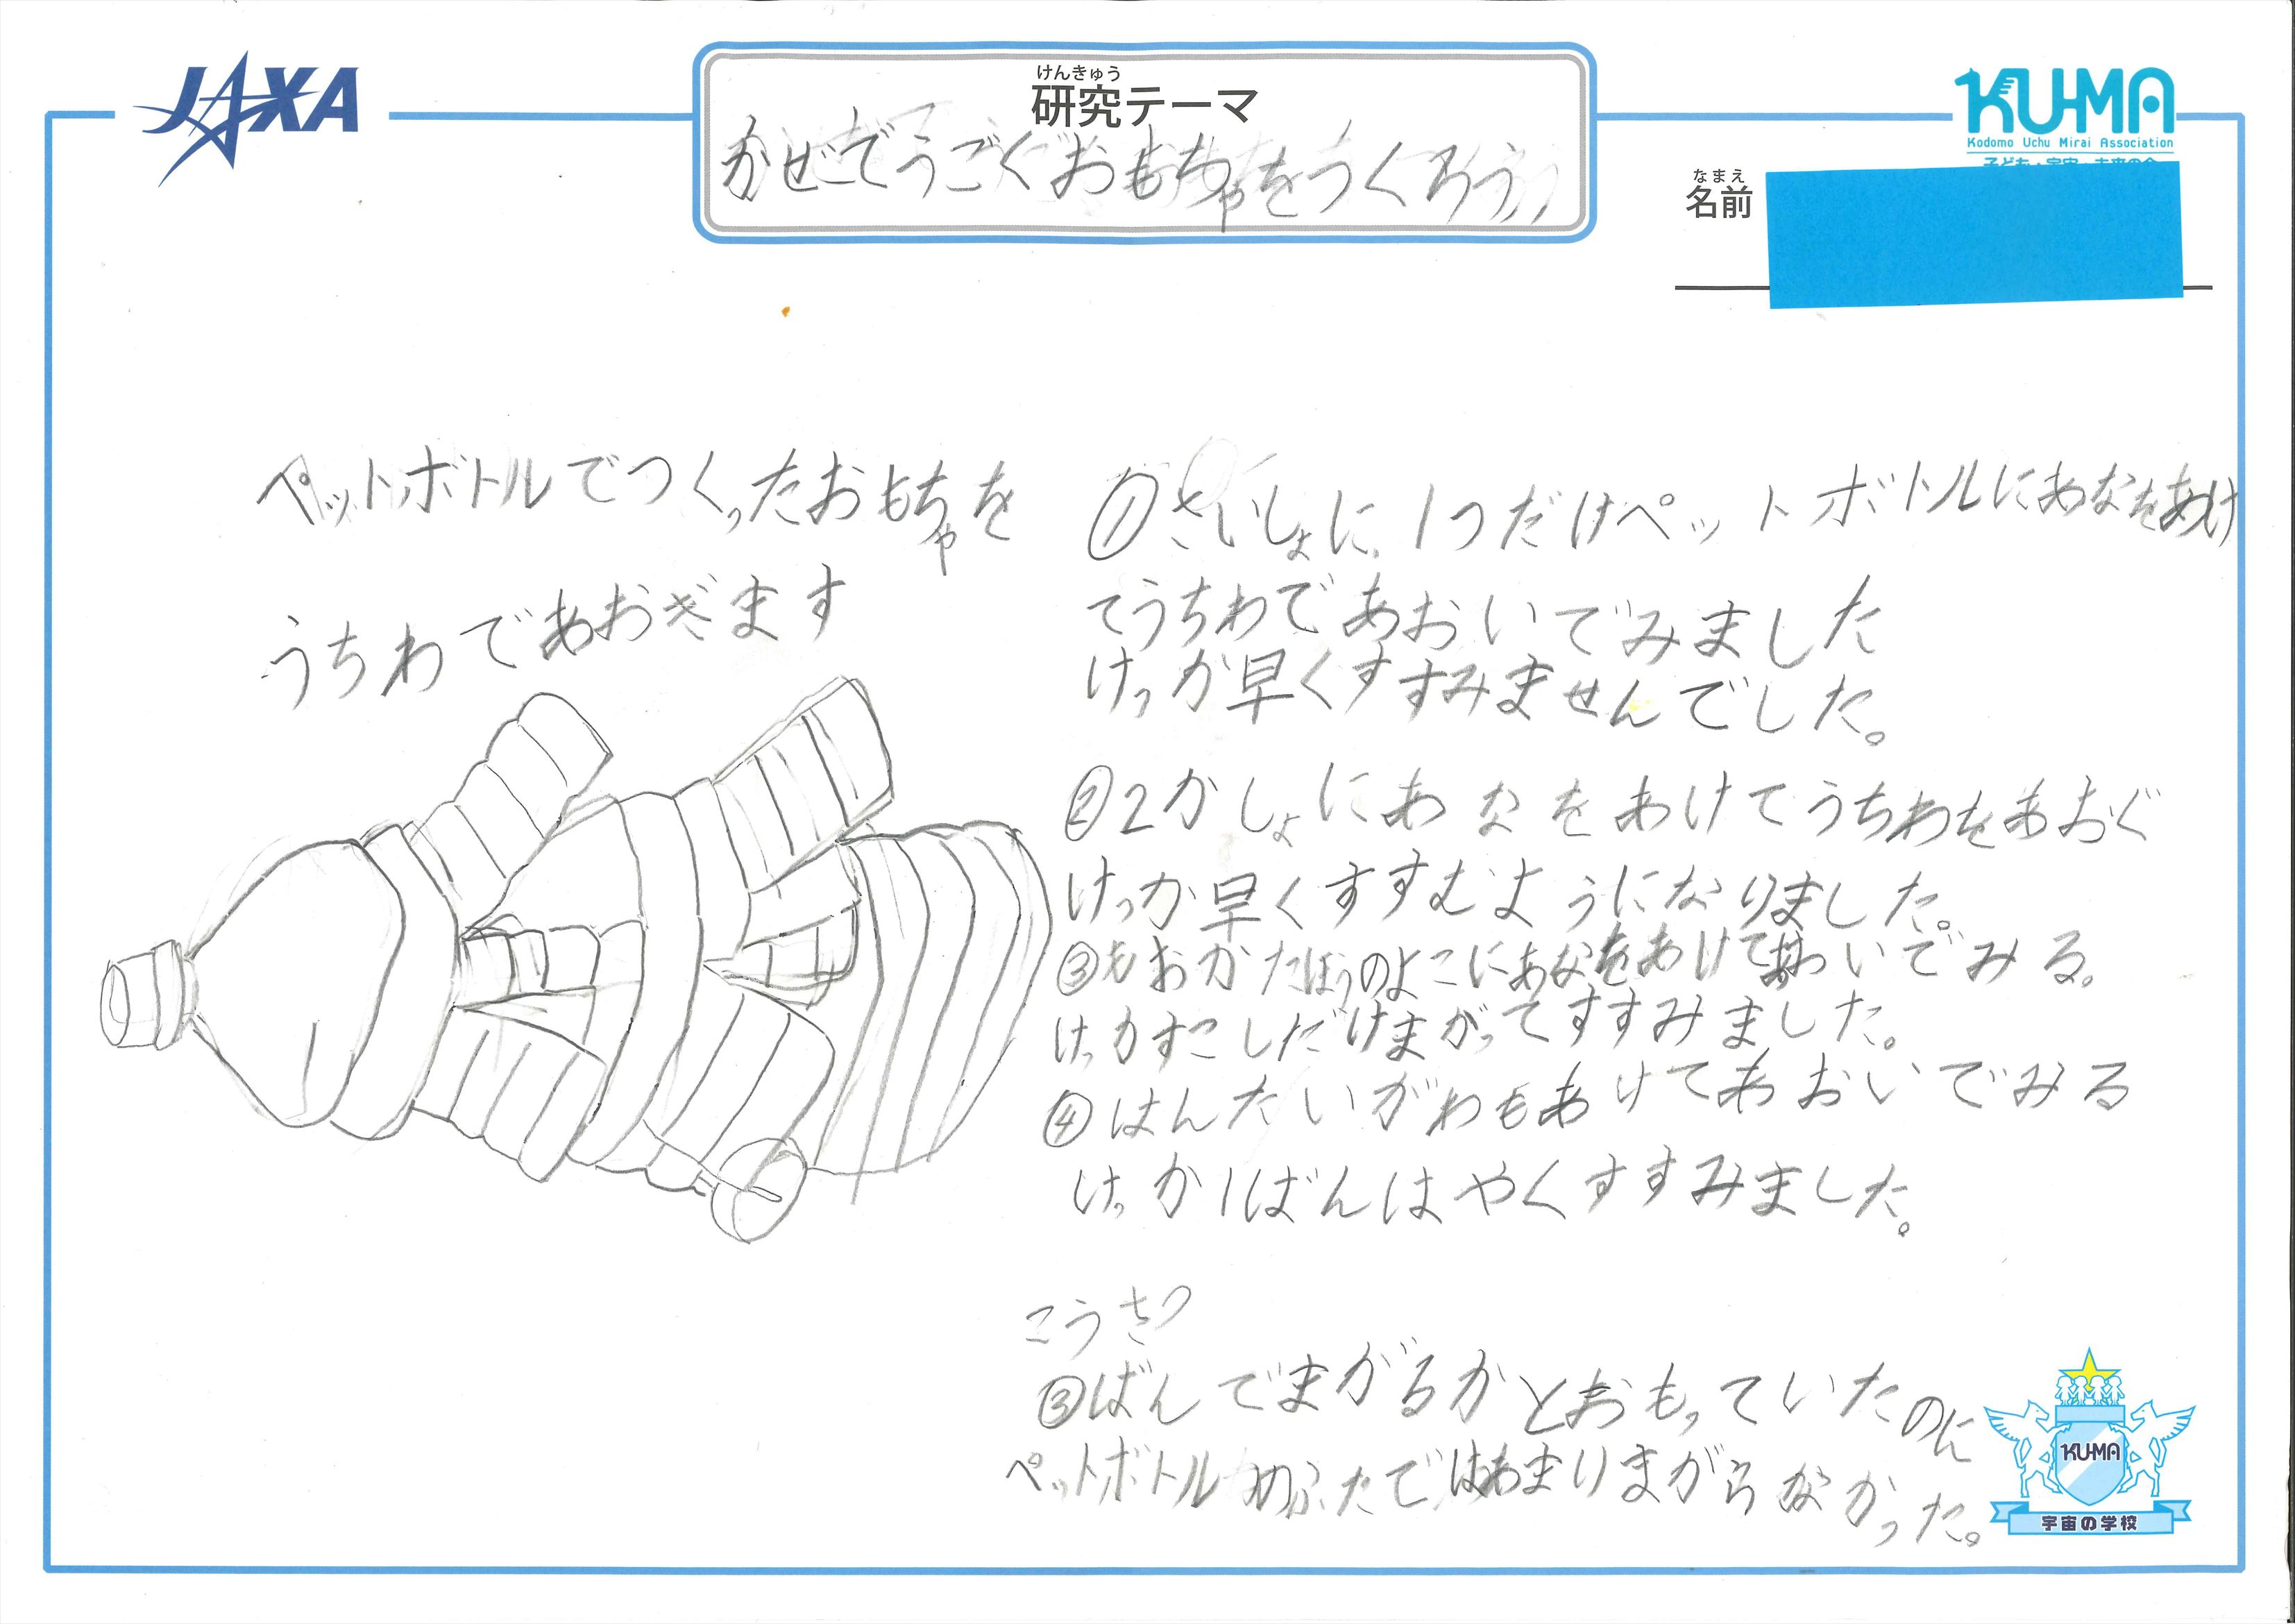 JAXA
けんきゅう
研究テーマ
かぜでうごくおもちゃをつくろう
KU-MA
Kodomo Uchu Mirai Association
なまえ
名前
ペットボトルでつくったおもちゃを
うちわであおぎます
①さいしょに1つだけペットボトルにあなをあけ
てうちわであおいでみました
けっか早くすすみませんでした。
②2かしょにあなをあけてうちわをあおぐ
けっか早くすすむようになりました。
③もおかたほうのよこにあなをあけてあおいでみる。
けっかすこしだけまがってすすみました。
④はんたいがわもあけてあおいでみる
けっか1ばんはやくすすみました。
こうさつ
③ばんでまがるかとおもっていたのに
ペットボトルのふたではあまりまがらなかった。
KU-MA
宇宙の学校